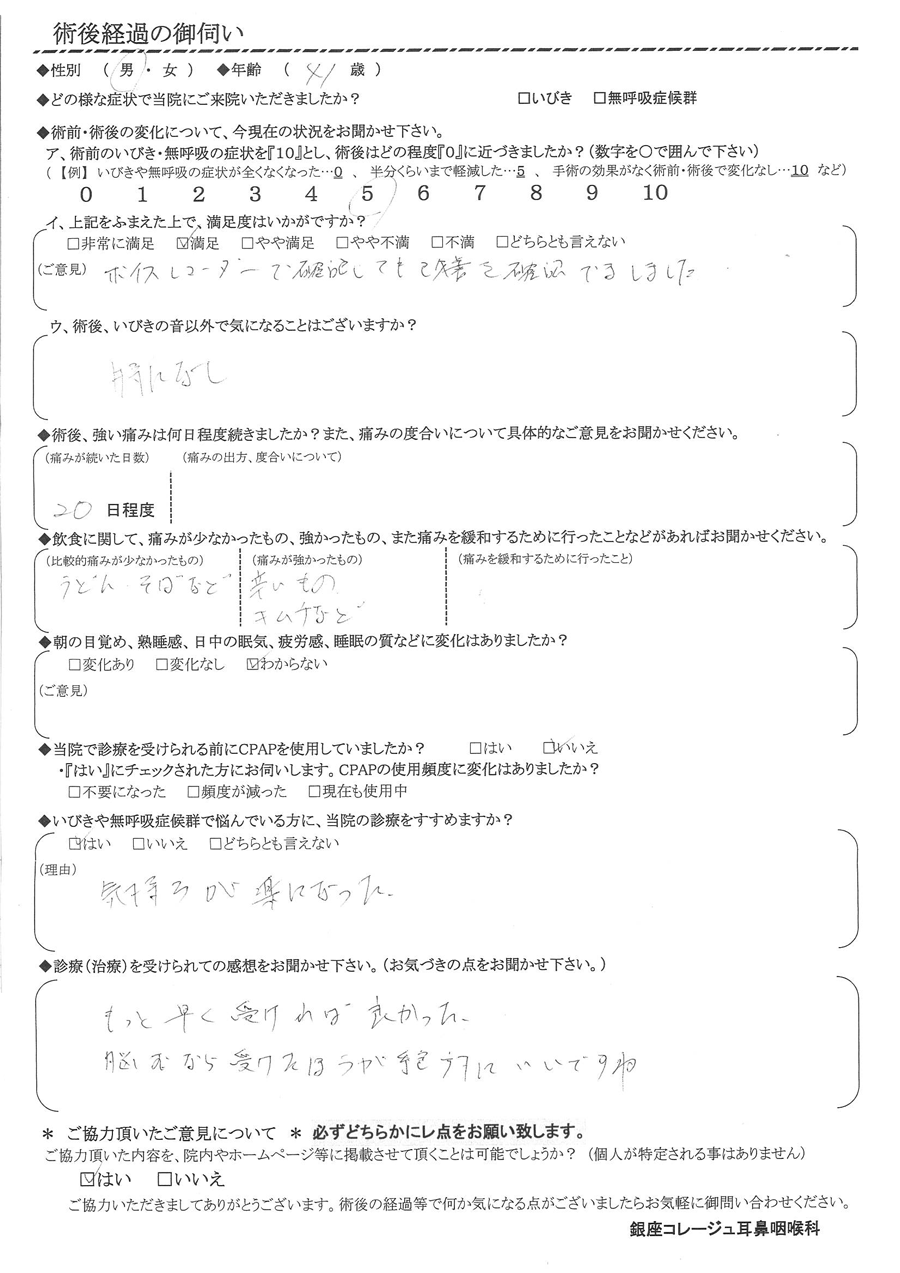 術後経過の御伺い
◆性別 ( 男 ・ 女 ) ◆年齢 ( 41 歳 )
◆どの様な症状で当院にご来院いただきましたか? □いびき □無呼吸症候群
◆術前・術後の変化について、今現在の状況をお聞かせ下さい。
ア、術前のいびき・無呼吸の症状を『10』とし、術後はどの程度『0』に近づきましたか?(数字を〇で囲んで下さい)
(【例】いびきや無呼吸の症状が全くなくなった…0 、 半分くらいまで軽減した…5 、 手術の効果がなく術前・術後で変化なし…10 など)
0 1 2 3 4 5 6 7 8 9 10
イ、上記をふまえた上で、満足度はいかがですか?
□非常に満足 ☑満足 □やや満足 □やや不満 □不満 □どちらとも言えない
(ご意見) ボイスレコーダーで確認しても改善を確認できました
ウ、術後、いびきの音以外で気になることはございますか?
特になし
◆術後、強い痛みは何日程度続きましたか?また、痛みの度合いについて具体的なご意見をお聞かせください。
(痛みが続いた日数) (痛みの出方、度合いについて)
20 日程度
◆飲食に関して、痛みが少なかったもの、強かったもの、また痛みを緩和するために行ったことなどがあればお聞かせください。
(比較的痛みが少なかったもの) (痛みが強かったもの) (痛みを緩和するために行ったこと)
うどん・そばなど 辛いもの
キムチなど
◆朝の目覚め、熟睡感、日中の眠気、疲労感、睡眠の質などに変化はありましたか?
□変化あり □変化なし ☑わからない
(ご意見)
◆当院で診療を受けられる前にCPAPを使用していましたか? □はい ☑いいえ
・『はい』にチェックされた方にお伺いします。CPAPの使用頻度に変化はありましたか?
□不要になった □頻度が減った □現在も使用中
◆いびきや無呼吸症候群で悩んでいる方に、当院の診療をすすめますか?
☑はい □いいえ □どちらとも言えない
(理由)
気持ちが楽になった.
◆診療(治療)を受けられての感想をお聞かせ下さい。(お気づきの点をお聞かせ下さい。)
もっと早く受ければ良かった.
脳むなら受けたほうが絶対にいいですね
* ご協力頂いたご意見について * 必ずどちらかにレ点をお願い致します。
ご協力頂いた内容を、院内やホームページ等に掲載させて頂くことは可能でしょうか? (個人が特定される事はありません)
☑はい □いいえ
ご協力いただきましてありがとうございます。術後の経過等で何か気になる点がございましたらお気軽に御問い合わせください。
銀座コレージュ耳鼻咽喉科